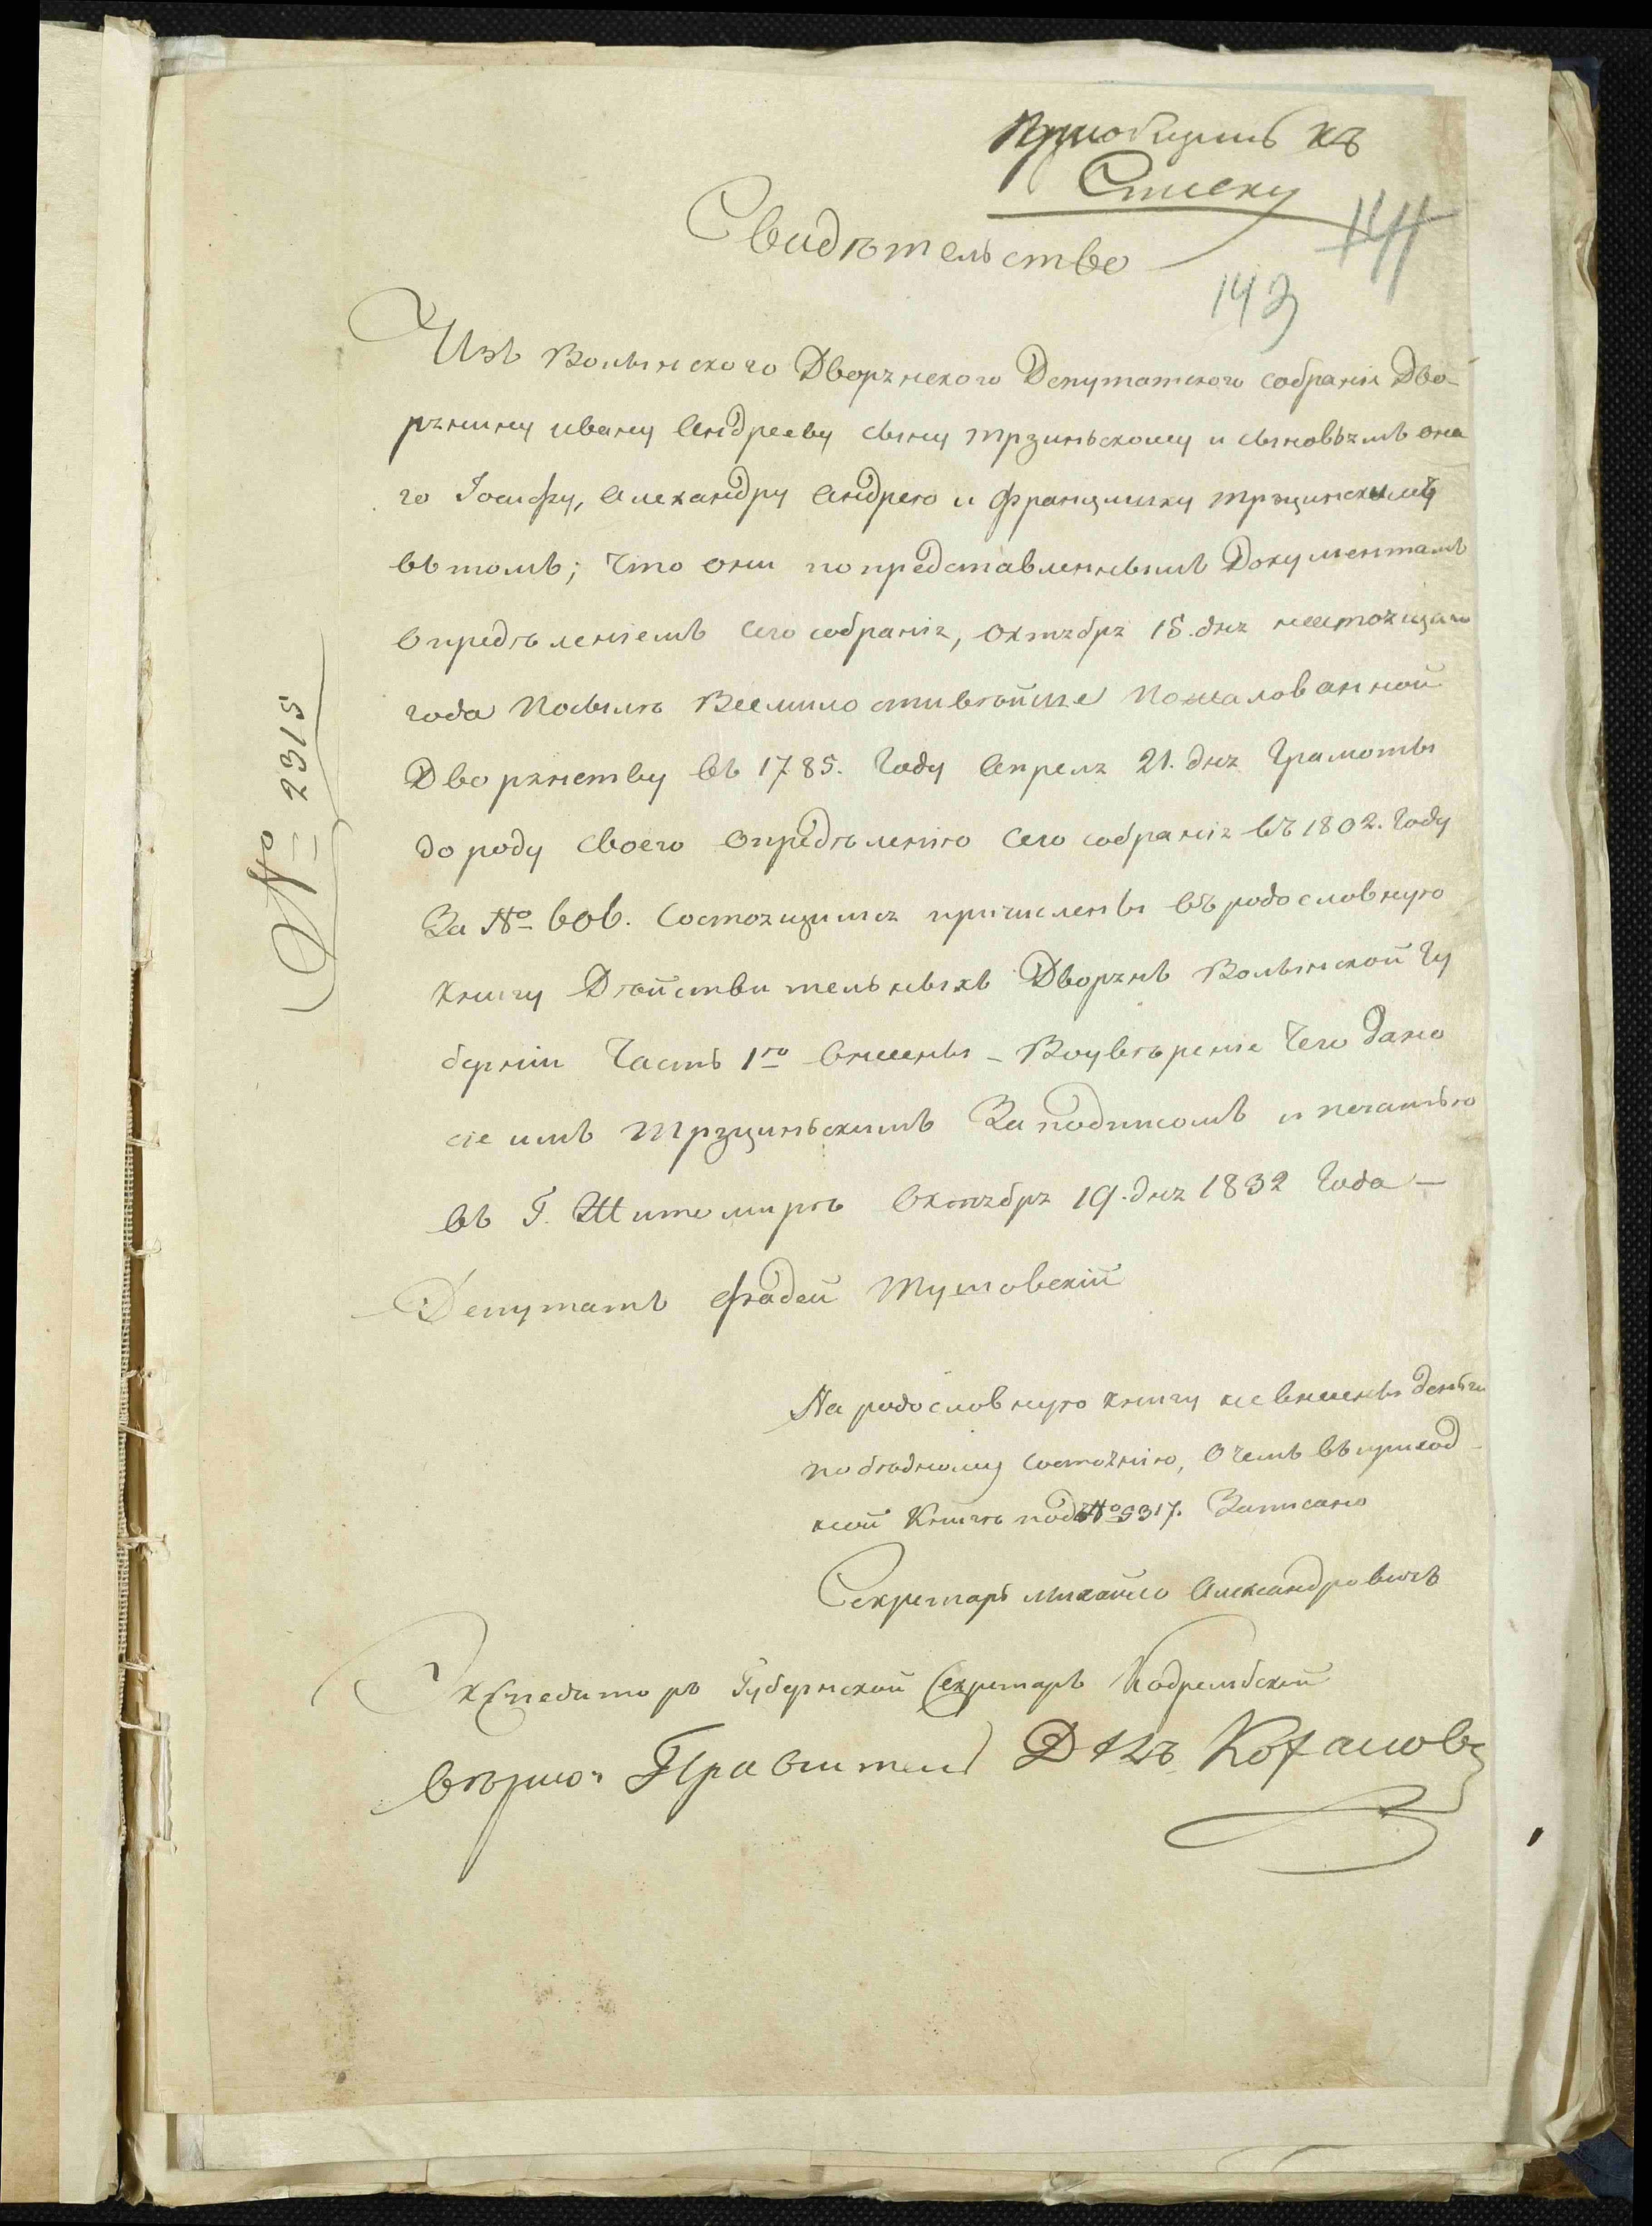 Приобщить къ
Списку
144
143
Свидѣтельство
Изъ Волынского Дворянского Депутатского собранія Дво-
рянину ивану Андрееву сыну трзцинскому и сыновьямъ она
го Іосифу, Александру Андрею и Францишку трзцинскимъ
въ томъ; что они по представленнымъ Документамъ
опредѣленіемъ сего собранія, октября 15. дня настоящаго
года по силѣ Всемилостивѣйше пожалованной
Дворянству въ 1785. году Апреля 21. дня Грамоты
до роду своего опредѣленію сего собранія въ 1802. году
За № 606. состоящимся причислены въ родословную
книгу Дѣйствительныхъ Дворянъ Волынской Гу
берніи Часть 1ю внесены – Во увѣреніе чего дано
сіе имъ Трзциньскимъ За подписомъ и печатью
въ Г. Житомирѣ Октября 19. дня 1832 года –
№ 2315
Депутатъ Фадей
На родословную книгу не внесены деньги
по бѣдному состоянію, о чемъ въ приход
ной Книгѣ подъ № 9317. Записано
Секретарь Михайло Александровичъ
Экспедиторъ Губернской Секретарь
вѣрно: Правитель Дѣлъ